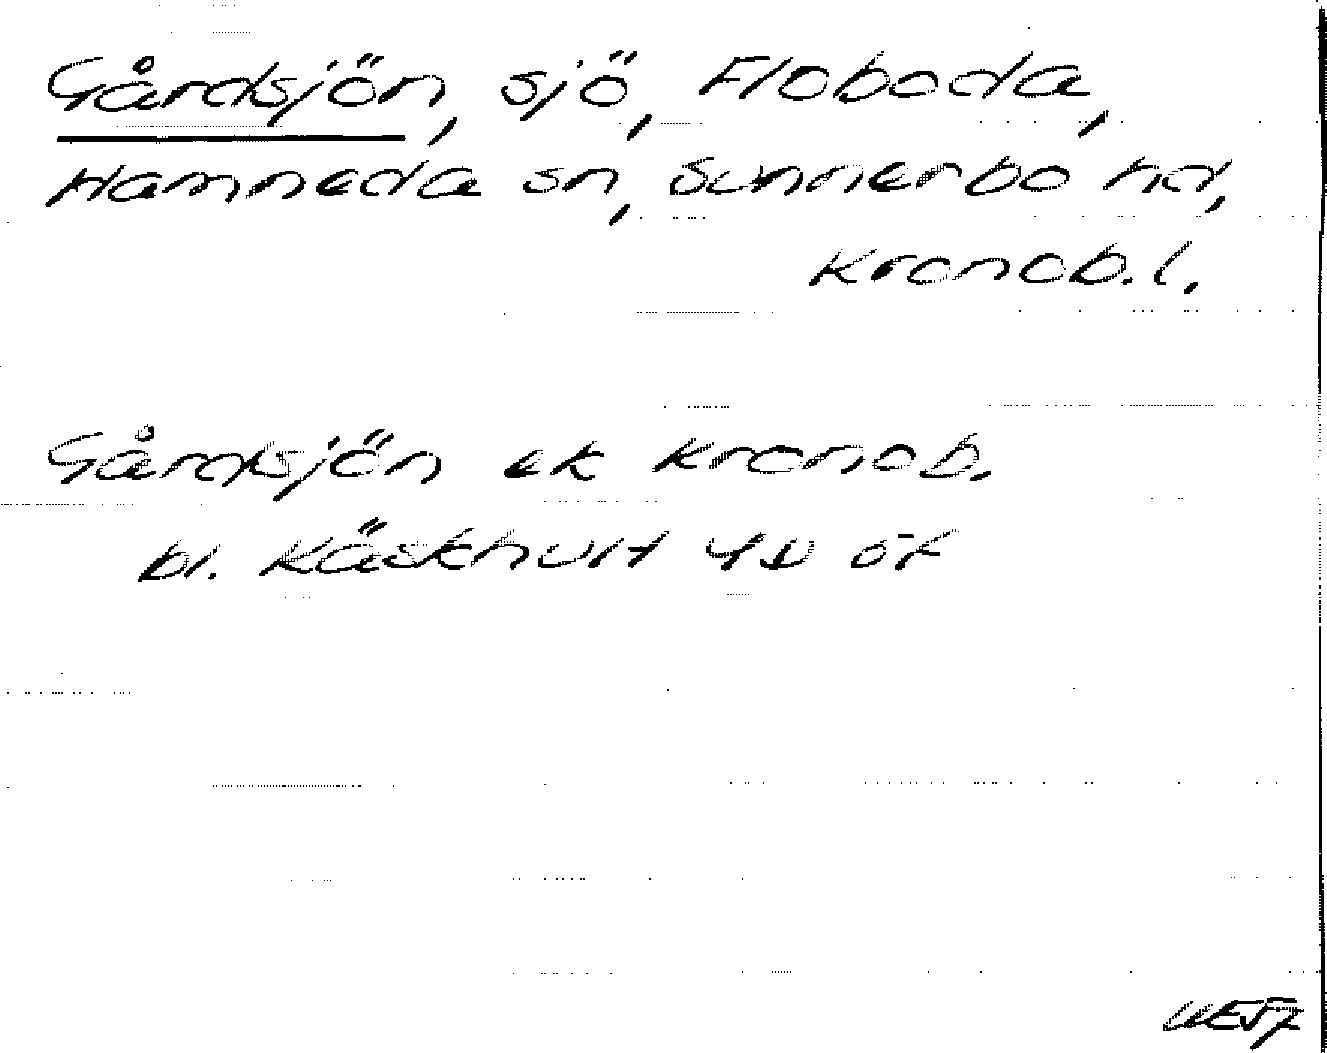 Gårdsjön, sjö, Floboda,
Hamneda sn, Sunnerbo hd,
Kronob. l.
Gårdsjön ek Kronob.
bl. Käskhult 4D öf